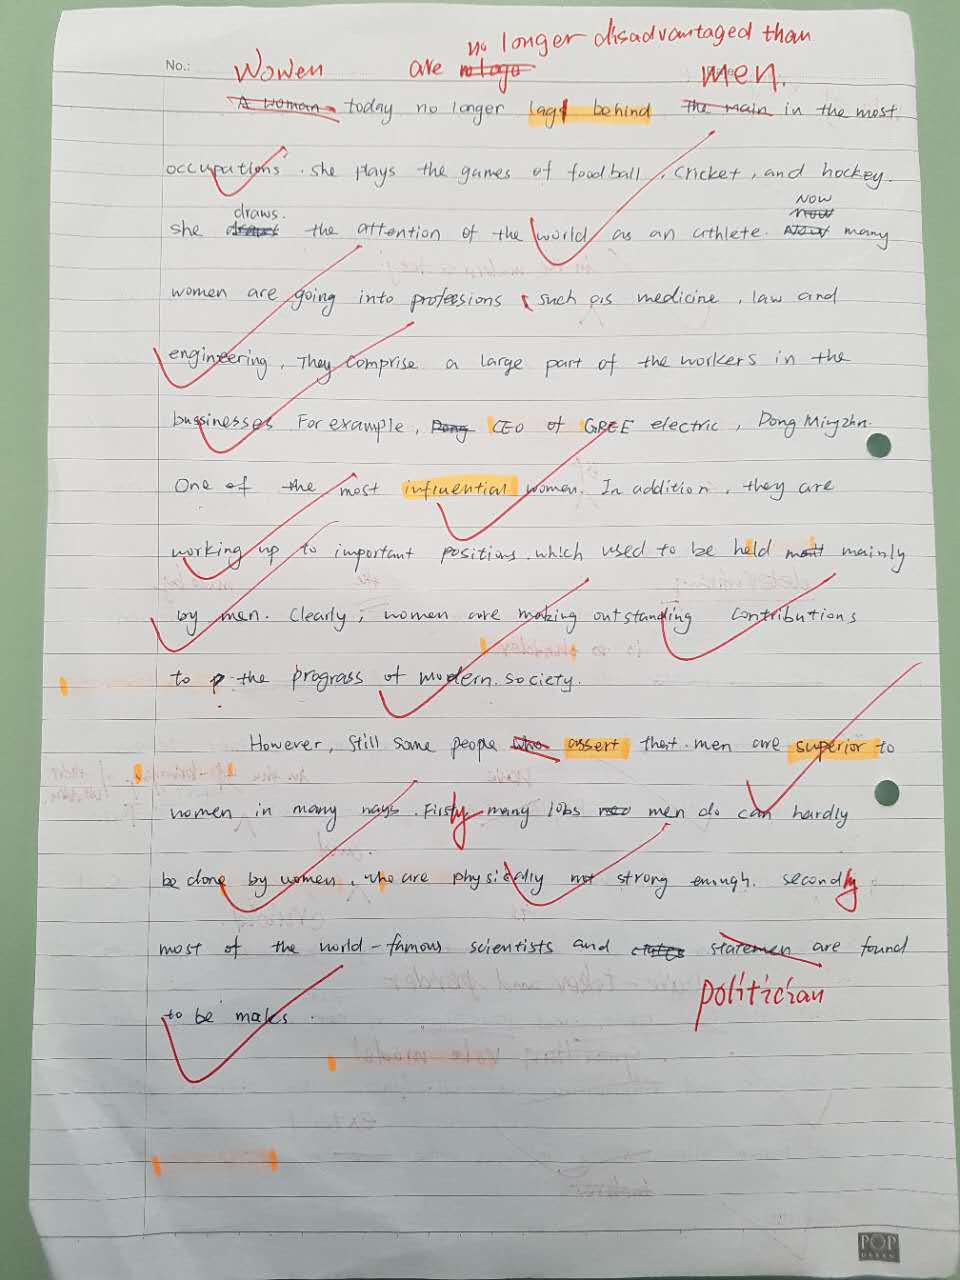 no longer disadvantaged than
No.:
Women are men.
A woman today no longer lags behind the main in the most
occupations. she plays the games of foodball, cricket, and hockey.
draws. NOW
she the attention of the world as an athlete. many
women are going into professions, such as medicine, law and
engineering, They comprise a large part of the workers in the
bussinesses For example, Dong CEO of GREE electric, Dong Mingzhu.
One of the most influential women. In addition, they are
working up to important positions. which used to be held mainly
by men. Clearly, women are making outstanding contributions
to the prograss of modern society.
However, still some people who assert that men are superior to
women in many ways. Firstly many jobs men do can hardly
be done by women, who are physically not strong enough. secondly
most of the world-famous scientists and statemen are found
politician
to be males.
POP